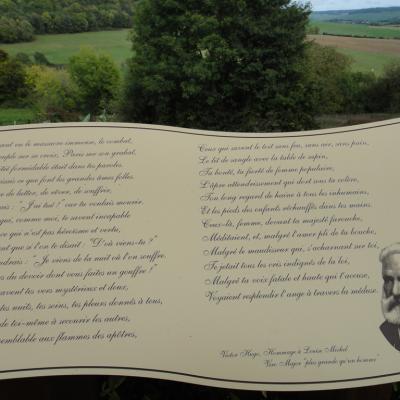 ant vu le massacre immense, le combat,
uple sur sa croix, Paris sur son grabat,
itié formidable était dans tes paroles.
isais ce que font les grandes âmes folles.
e de lutter, de rêver, de souffrir,
ais : "J'ai tué !" car tu voulais mourir.
qui, comme moi, te savent incapable
e ce qui n'est pas héroïsme et vertu,
nt que si l'on te disait : "D'où viens-tu ?"
ndrais : "Je viens de la nuit où l'on souffre.
rs du devoir dont vous faites un gouffre !"
avent tes vers mystérieux et doux,
tes nuits, tes soins, tes pleurs donnés à tous,
de toi-même à secourir les autres,
semblable aux flammes des apôtres,
Ceux qui savent le toit sans feu, sans air, sans pain,
Le lit de sangle avec la table de sapin,
Ta bonté, ta fierté de femme populaire,
L'âpre attendrissement qui dort sous ta colère,
Ton long regard de haine à tous les inhumains,
Et les pieds des enfants réchauffés dans tes mains.
Ceux-là, femme, devant ta majesté farouche,
Méditaient, et, malgré l'amer pli de ta bouche,
Malgré le maudisseur qui, s'acharnant sur toi,
Te jetait tous les cris indignés de la loi,
Malgré ta voix fatale et haute qui t'accuse,
Voyaient resplendir l'ange à travers la méduse.
Victor Hugo, Hommage à Louise Michel
Viro Major "plus grande qu'un homme"